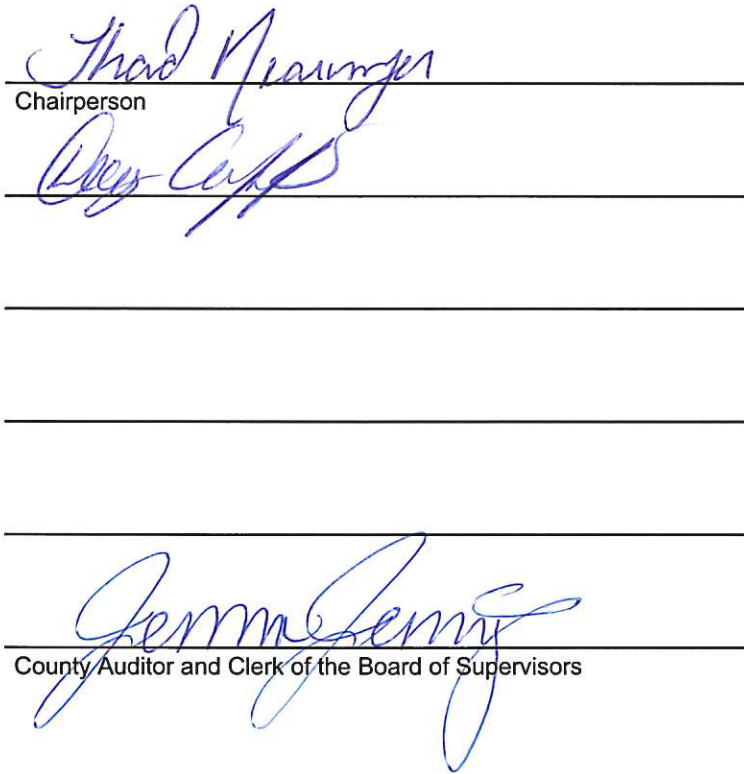 Thad Nearmyer
Chairperson
Doug Cupples
County Auditor and Clerk of the Board of Supervisors